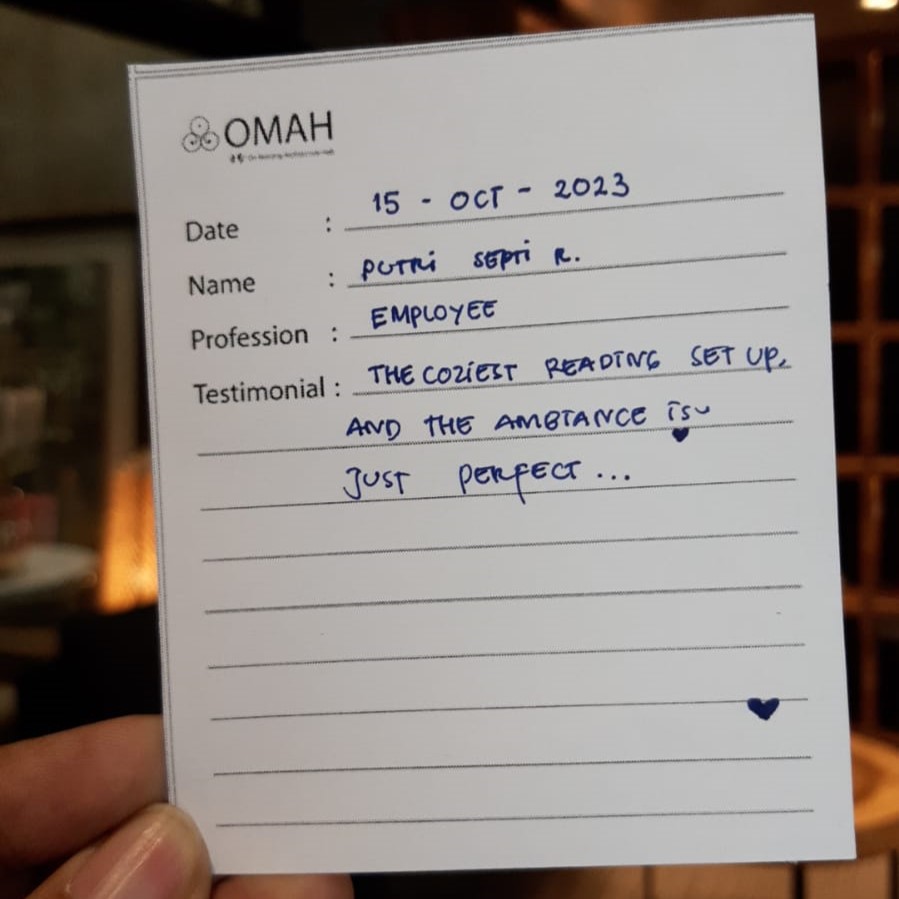 OMAH
Date : 15 - OCT - 2023
Name : PUTRI SEPTI R.
Profession : EMPLOYEE
Testimonial : THE COZIEST READING SET UP,
AND THE AMBIANCE IS
JUST PERFECT...